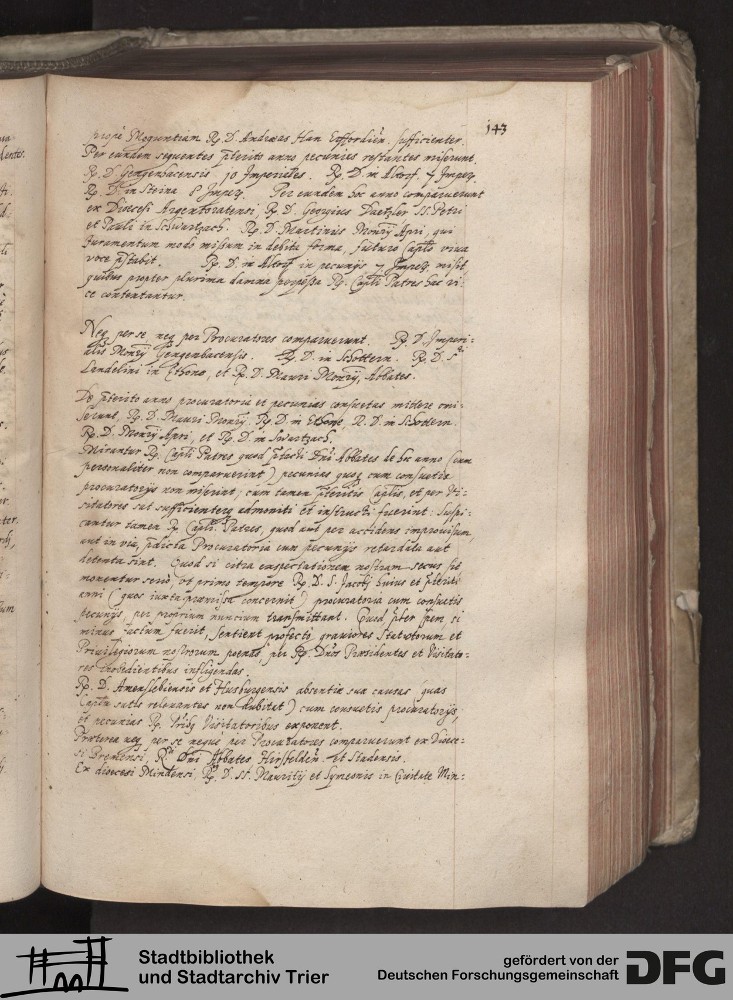 143
prope Moguntiam Rp. D. Andreas Han Erffordien. sufficienter.
Per eundem sequentes pterito anno pecunias restantes miserunt.
Rp. D. Gengenbacensis 10 Imperiales. Rp. D. in Altorf. 7 Imper.
Rp. D. in Steina 8 Imper. Per eundem hoc anno comparuerunt
ex Diœcesi Argentoratensi, Rp. D. Georgius SS. Petri
et Pauli in Schwartzach. Rp. D. Martinus Monrÿ Apri, qui
Juramentum modo missum in debita forma, futuro Caplo viva
voce pstabit. Rp. D. in Altorf in pecunijs 7 Imper. misit
quibus propter plurima damna perpessa Rp. Capli Patres hac vi-
ce contentantur.
Neq per se neq per Procuratores comparuerunt. Rp. D. Imperi-
alis Monrÿ Gengenbacensis. Rp. D. in Schottern. Rp. D. S.
Landelini in Ethone, et Rp. D. Mauri Monrÿ, Abbates.
De pterito anno procuratoria et pecunias consuetas mittere omi-
serunt, Rp. D. Mauri Monrÿ. Rp. D. in Ethone, R. D. in Schottern.
Rp. D. Monrÿ Apri, et Rp. D. in Swartzach.
Mirantur Rp. Capli Patres quod pfacti Dni Abbates de hoc anno (cum
personaliter non comparuerint) pecunias quoq cum consuetis
procuratorijs non miserint; cum tamen pteritis Caplis, et per Vi-
sitatores sat sufficienter admoniti et instructi fuerint: Suspi-
cantur tamen Rp. Capli Patres, quod aut per accidens improvisum,
aut in via, pdicta Procuratoria cum pecunijs retardata aut
detenta sint. Quod si citra exspectationem nostram secus sit
monentur serio, ut primo tempore Rp. D. S. Jacobi huius et pteriti
anni (quos iuxta præmissa concernit) procuratoria cum consuetis
pecunijs, per proprium nuncium transmittant. Quod pter spem si
minus factum fuerit, sentient profecto graviores Statutorum et
Privilegiorum nostrorum poenas, per Rp. Dnos Præsidentes et Visitato-
res inobedientibus infligendas.
Rp. D. Amenslebiensis et Husburgensis absentiæ suæ causas (quas
Caplm satis relevantes non dubitat) cum consuetis procuratorijs,
et pecunias Rp. Dnis Visitatoribus exponent.
Præterea neq per se neque per Procuratores comparuerunt ex Diœce-
si Bremensi, R. Dni Abbates Hirsfelden. et Stadensis.
Ex diœcesi Mindensi Rp. D. SS. Mauritij et Symeonis in Civitate Min-
Stadtbibliothek
und Stadtarchiv Trier
gefördert von der
Deutschen Forschungsgemeinschaft
DFG